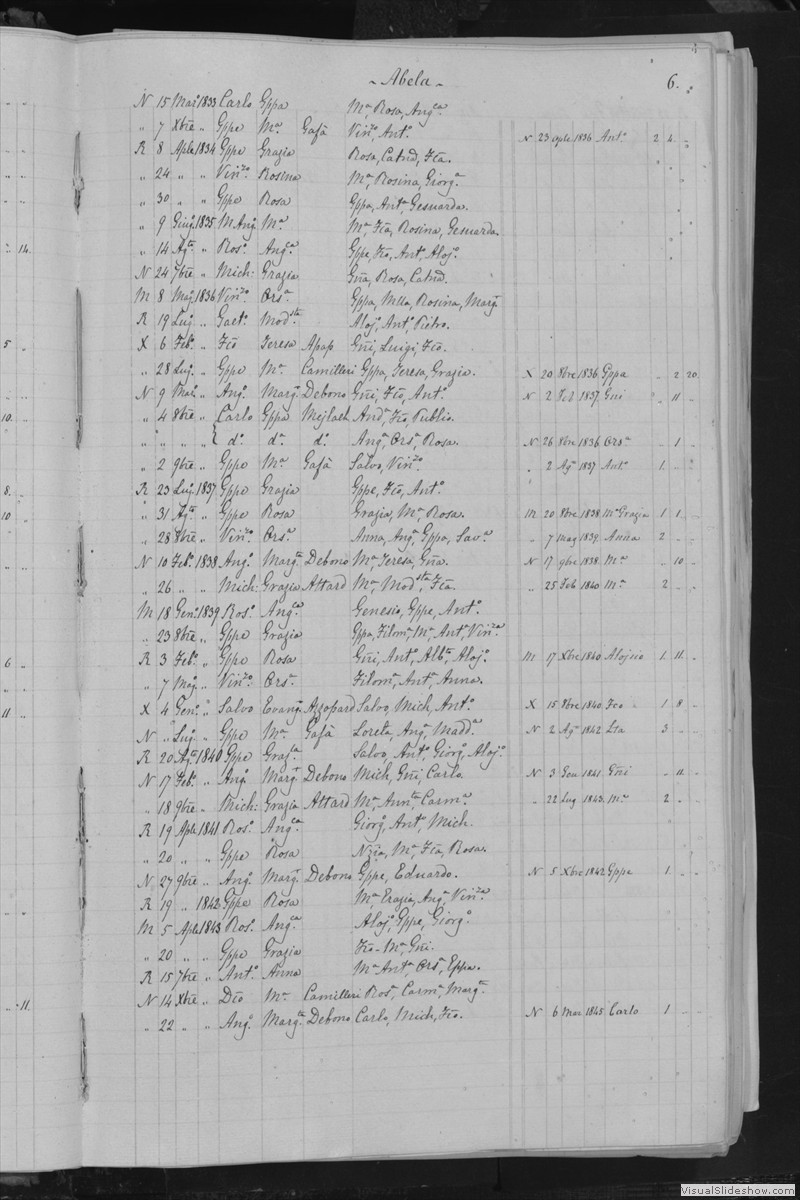 Abela 6.
N 15 Mar. 1833 Carlo Gppa Mª, Rosa, Ang.ca
" 7 Xbre " Gppe Mª Gafà Vin.zo, Ant.o N 23 Aple 1836 Ant.o 2 4 "
R 8 Aple 1834 Gppe Grazia Rosa, Catnd, Fca.
" 24 " " Vin.zo Rosina Mª, Rosina, Giorg.a
" 30 " " Gppe Rosa Gppa, Ant.a Gesuarda.
" 9 Giug. 1835 M. Ang. Mª Mª, Fca, Rosina, Gesuarda.
" 14 Ag.to " Ros.o Ang.ca Gppe, Fco, Ant.o, Aloj.o
N 24 7bre " Mich: Grazia Gña, Rosa, Catnd.
M 8 Mag. 1836 Vin.zo Ors.a Gppa, Mlla, Rosina, Marg.
R 19 Lug. " Gaet.o Mod.sta Aloj.o, Ant.o, Pietro.
5 X 6 Feb. " Fco Teresa Apap Gñi, Luigi, Fco.
" 28 Lug. " Gppe Mª Camilleri Gppa, Teresa, Grazia. X 20 8bre 1836 Gppa " 2 20
N 9 Mar. " Ang.o Marg. Debono Gñi, Fco, Ant.o N 2 Feb 1837 Gñi " 11 "
10. " 4 8bre " Carlo Gppa Mejlach And.a Fco, Publio.
" " " " { d.o d.a d.o Ang.a, Ors.a, Rosa. N 26 8bre 1836 Ors.a " 1 "
" 2 9bre " Gppe Mª Gafà Salvo, Vin.zo " 2 Ag. 1837 Ant.o 1 " "
8. R 23 Lug. 1837 Gppe Grazia Gppe, Fco, Ant.o
10 " 31 Ag.to " Gppe Rosa Grazia, Mª, Rosa. M 20 8bre 1838 Mª Grazia 1 1 "
" 28 8bre " Vin.zo Ors.a Anna, Ang.a Gppa, Sav.a " 7 Mag 1839 Anna 2 " "
N 10 Feb. 1838 Ang.o Marg.ta Debono Mª, Teresa, Gña. N 17 9bre 1838 Mª " 10 "
" 26 " " Mich: Grazia Attard Mª, Mod.sta, Fca. " 25 Feb 1840 Mª 2 " "
M 18 Gen. 1839 Ros.o Ang.ca Genesio, Gppe, Ant.o
" 23 8bre " Gppe Grazia Gppa, Filom.a, Mª, Ant.a, Vin.za
6 R 3 Feb. " Gppe Rosa Gñi, Ant.o, Alb.to, Aloj.o M 17 Xbre 1840 Alojsio 1 11 "
" 7 Mag. " Vin.zo Ors.a Filom.a, Ant.a, Anna.
11 X 4 Gen. " Salvo Evang. Azzopard Salvo, Mich, Ant.o X 15 8bre 1840 Fco 1 8 "
N " Lug. " Gppe Mª Gafà Loreta, Ang.a, Madd.a N 2 Ag. 1842 3 " "
R 20 Ag.to 1840 Gppe Graz.a Salvo, Ant.o, Giorg.o, Aloj.o
N 17 Feb. " Ang.o Marg. Debono Mich, Gñi, Carlo N 3 Gen 1841 Gñi " 11 "
" 18 9bre " Mich: Grazia Attard Mª, Ann.ta, Carm.a " 22 Lug 1843 Mª 2 " "
R 19 Aple 1841 Ros.o Ang.ca Giorg.o, Ant.o, Mich.
" 20 " " Gppe Rosa Nzia, Mª, Fca, Rosa.
N 27 9bre " Ang.o Marg. Debono Gppe, Eduardo. N 5 Xbre 1842 Gppe 1 " "
R 19 " 1842 Gppe Rosa Mª, Grazia, Ang.a, Vin.za
M 5 Aple 1843 Ros.o Ang.ca Aloj.o, Gppe, Giorg.o
" 20 " " Gppe Grazia Fco Mª, Gñi.
R 15 7bre " Ant.o Anna Mª Ant.a Ors.a, Gppa.
11. N 14 Xbre " Dco Mª Camilleri Ros.a, Carm.a, Marg.ta
" 22 " " Ang.o Marg.ta Debono Carlo, Mich, Fco. N 6 Mar 1845 Carlo 1 " "
14.
VisualSlideshow.com